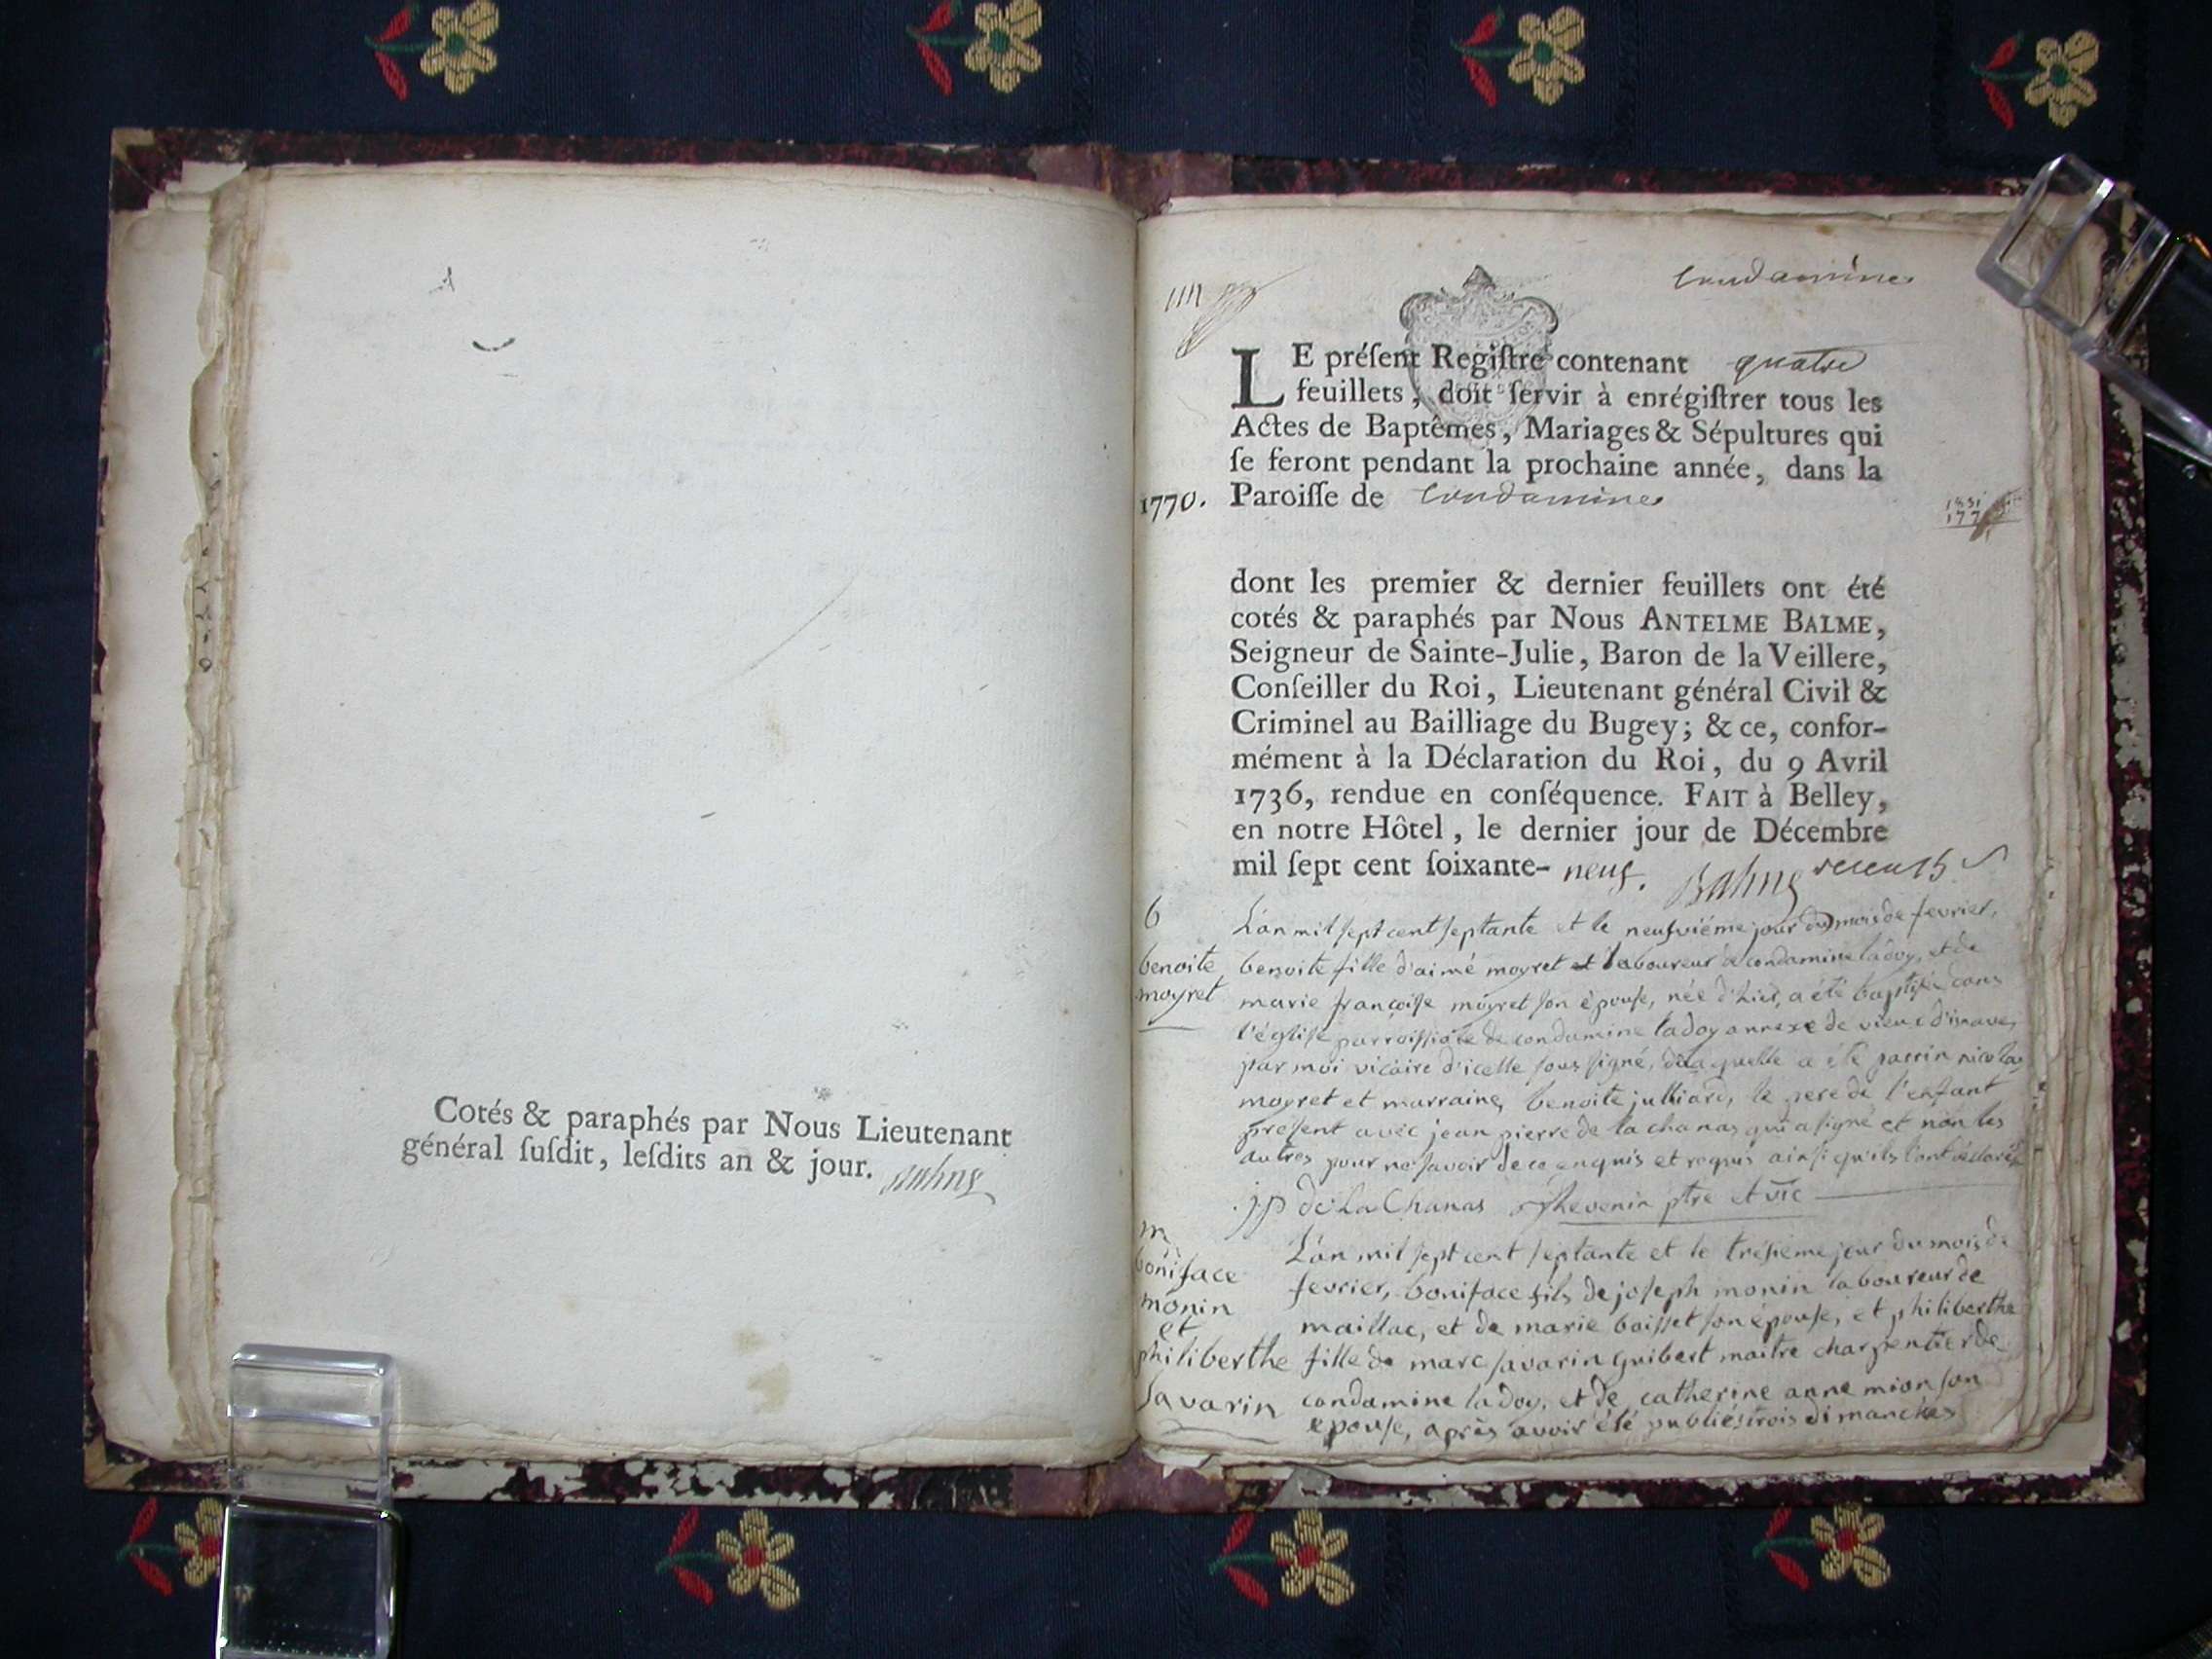 Cotés & paraphés par Nous Lieutenant
général ſuſdit, leſdits an & jour.
Condamine
LE préſent Regiſtre contenant quatre
feuillets, doit ſervir à enrégiſtrer tous les
Actes de Baptêmes, Mariages & Sépultures qui
ſe feront pendant la prochaine année, dans la
1770. Paroiſſe de Condamine
dont les premier & dernier feuillets ont été
cotés & paraphés par Nous ANTELME BALME,
Seigneur de Sainte-Julie, Baron de la Veillere,
Conſeiller du Roi, Lieutenant général Civil &
Criminel au Bailliage du Bugey; & ce, confor-
mément à la Déclaration du Roi, du 9 Avril
1736, rendue en conſéquence. FAIT à Belley,
en notre Hôtel, le dernier jour de Décembre
mil ſept cent ſoixante- neuf. Balme
b
benoite
moyret
L'an mil sept cent septante et le neufviéme jour du mois de fevrier,
benoite fille d'aimé moyret laboureur de condamine ladoy, et de
marie françoise moyret son épouse, née d'hier, a été baptisée dans
l'église parroissiale de condamine ladoy annexe de vieux d'isnave,
par moi vicaire d'icelle sous signé, de laquelle a été parrin nicolas
moyret et marraine, benoite julliard, le pere de l'enfant
present avec jean pierre de la chanas qui a signé et non les
autres pour ne savoir de ce enquis et requis ainsi qu'ils l'ont déclaré
jp de La Chanas Thevenin ptre et vic
m
boniface
monin
et
philiberthe
savarin
L'an mil sept cent septante et le tresieme jour du mois de
fevrier, boniface fils de joseph monin laboureur de
maillac, et de marie boisset son épouse, et philiberthe
fille de marc savarin guibert maitre charpentier de
condamine ladoy, et de catherine anne mion son
epouse, après avoir été publiés trois dimanches